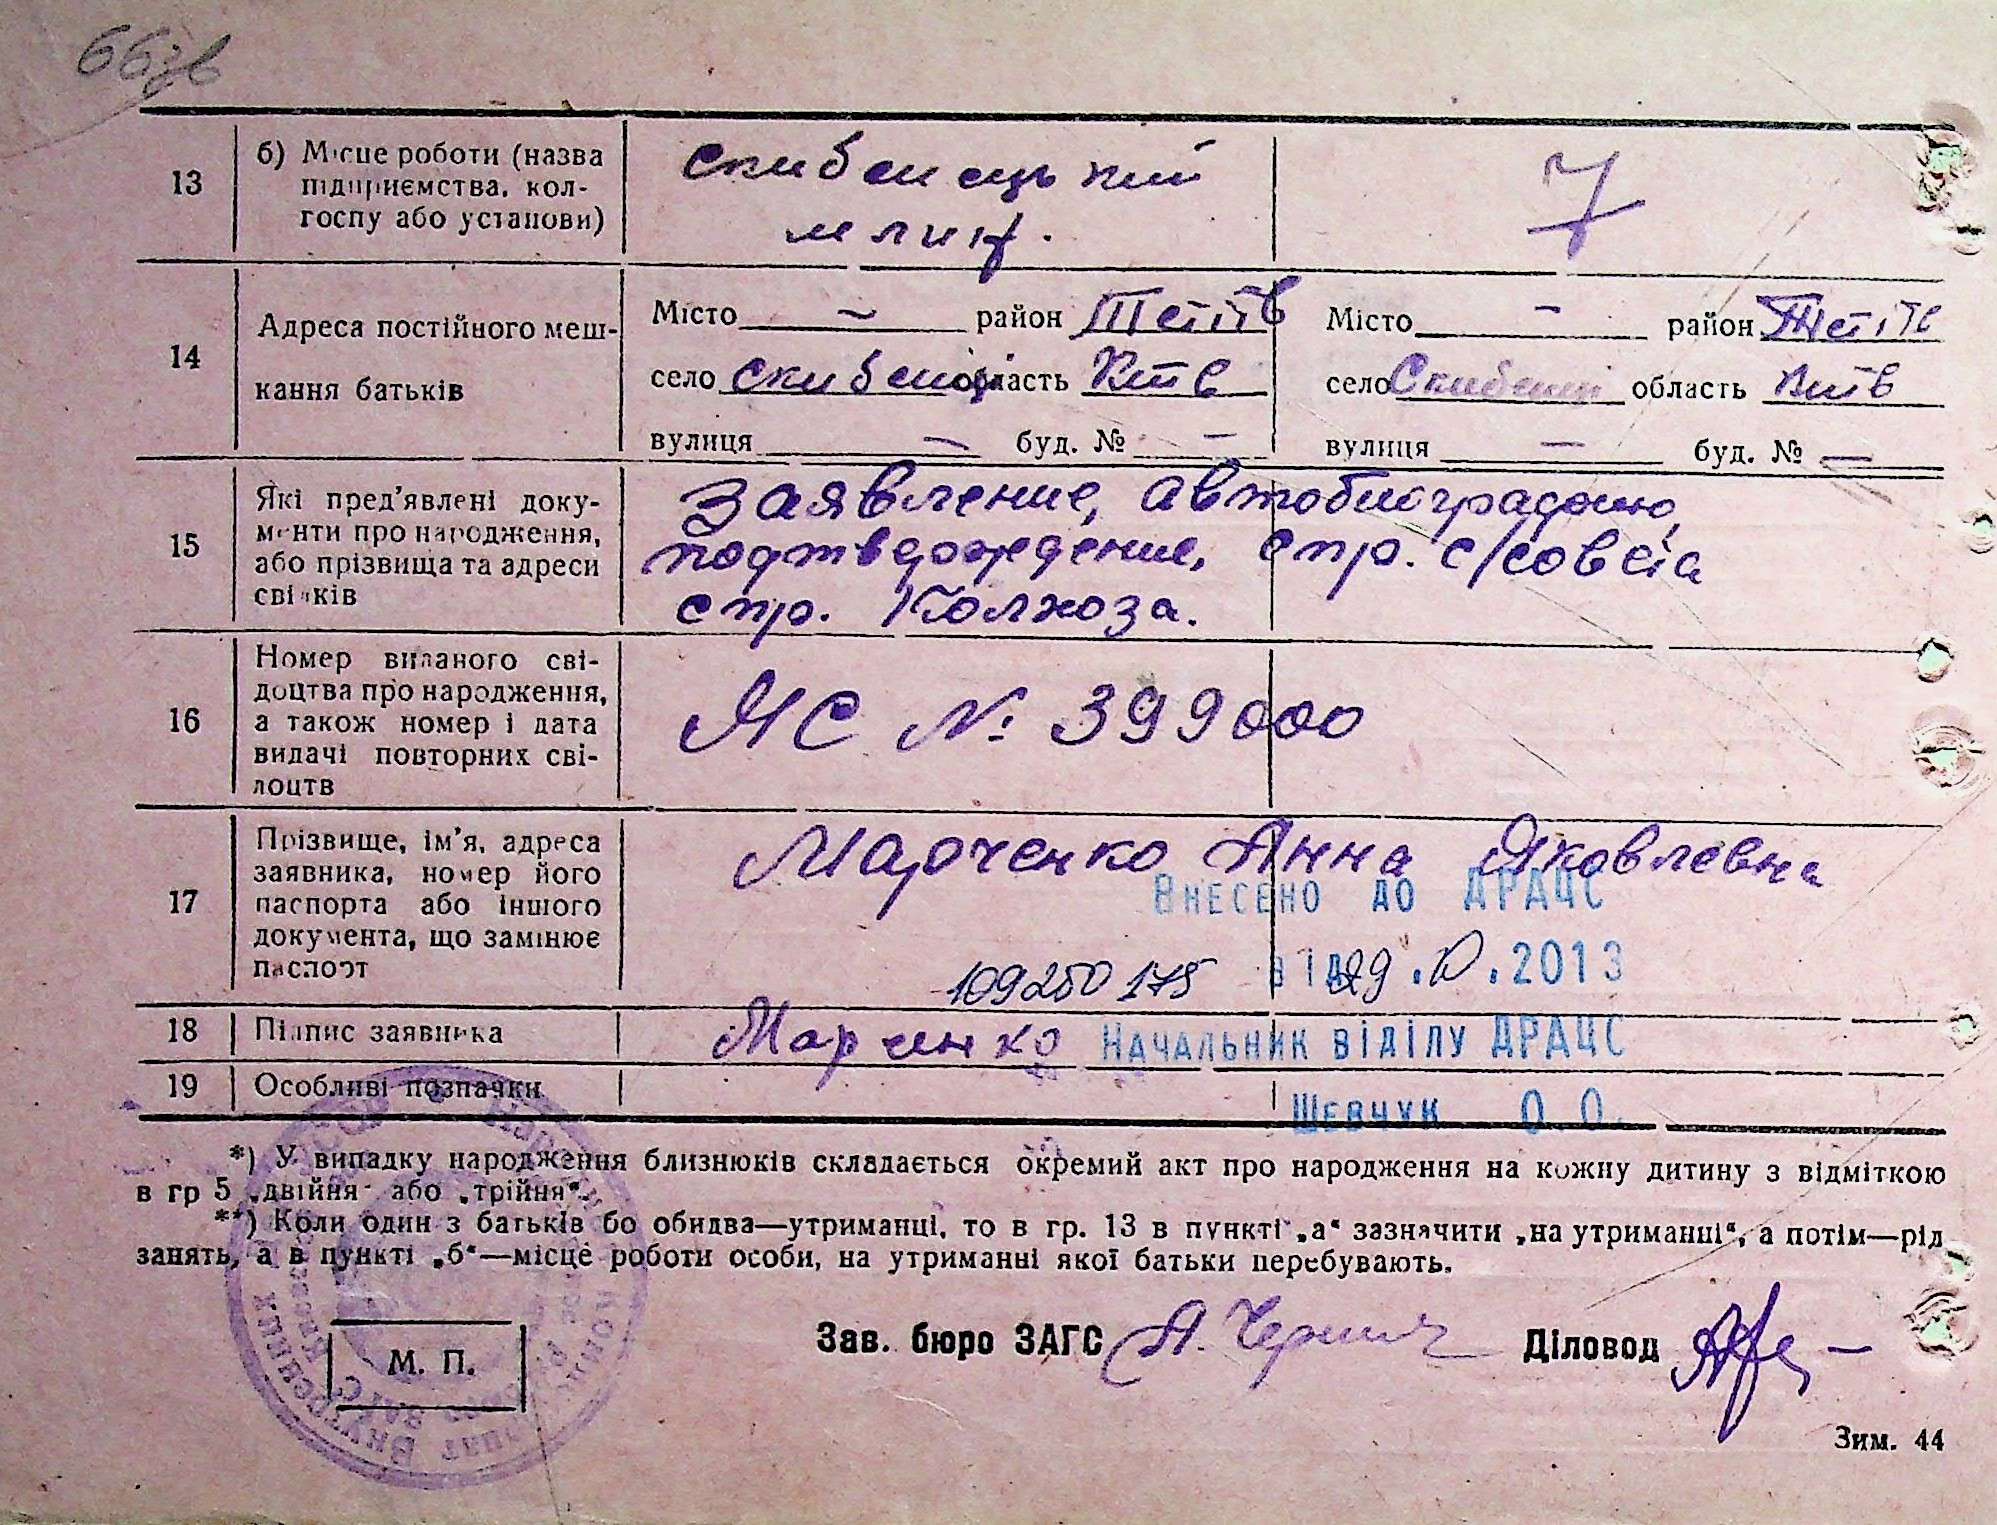 66зв
13
б) Місце роботи (назва
підприємства, кол-
госпу або установи)
Скибенецький
млин.
14
Адреса постійного меш-
кання батьків
Місто — район Тетів
село Скибенці область Київ
вулиця — буд. № —
Місто — район Тетів
село Скибенці область Київ
вулиця — буд. № —
15
Які пред'явлені доку-
менти про народження,
або прізвища та адреси
свідків
Заявление, автобиография,
подтверждение, спр. с/совета
спр. Колхоза.
16
Номер виданого сві-
доцтва про народження,
а також номер і дата
видачі повторних сві-
доцтв
ЯС № 399000
17
Прізвище, ім'я, адреса
заявника, номер його
паспорта або іншого
документа, що замінює
паспорт
Марченко Анна Яковлевна
Внесено до ДРАЦС
109250175
від 29.10.2013
18
Підпис заявника
Марченко
Начальник відділу ДРАЦС
19
Особливі позначки
Шевчук О.О.
*) У випадку народження близнюків складається окремий акт про народження на кожну дитину з відміткою
в гр 5 „двійня" або „трійня".
**) Коли один з батьків бо обидва—утриманці, то в гр. 13 в пункті „а" зазначити „на утриманні", а потім—рід
занять, а в пункті „б"—місце роботи особи, на утриманні якої батьки перебувають.
М. П.
Зав. бюро ЗАГС
Діловод
Зим. 44